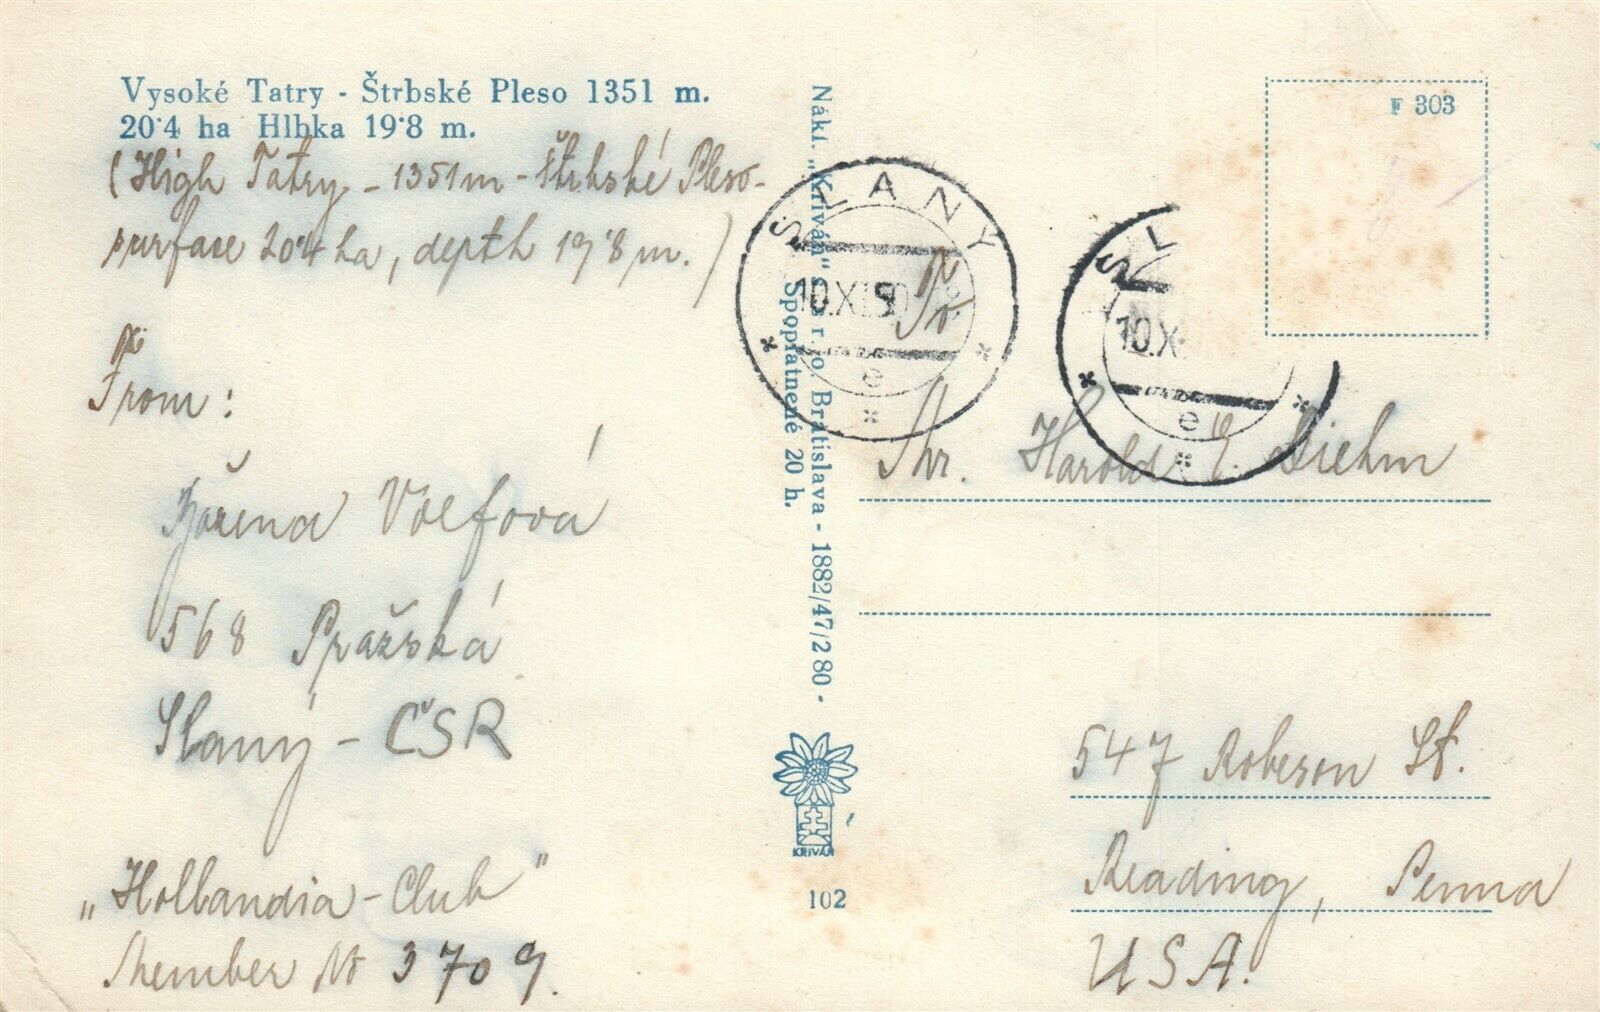 Vysoké Tatry - Štrbské Pleso 1351 m.
20·4 ha Hlbka 19·8 m.
(High Tatry - 1351m - Štrbské Pleso -
surface 20·4 ha, depth 19·8 m.)
From:
Božena Volfová
568 Pražská
Slaný - ČSR
„Hollandia - Club"
Member No 3709.
Nákl. „Kriváň" s. s r. o. Bratislava - 1882/47/280 -
Spoplatnené 20 h.
KRIVÁŇ
102
F 303
SLANÝ
10.XI.50
e
SL
10.X
e
To:
Mr. Harold E. Diehm
547 Roberson St.
Reading, Penna
USA.